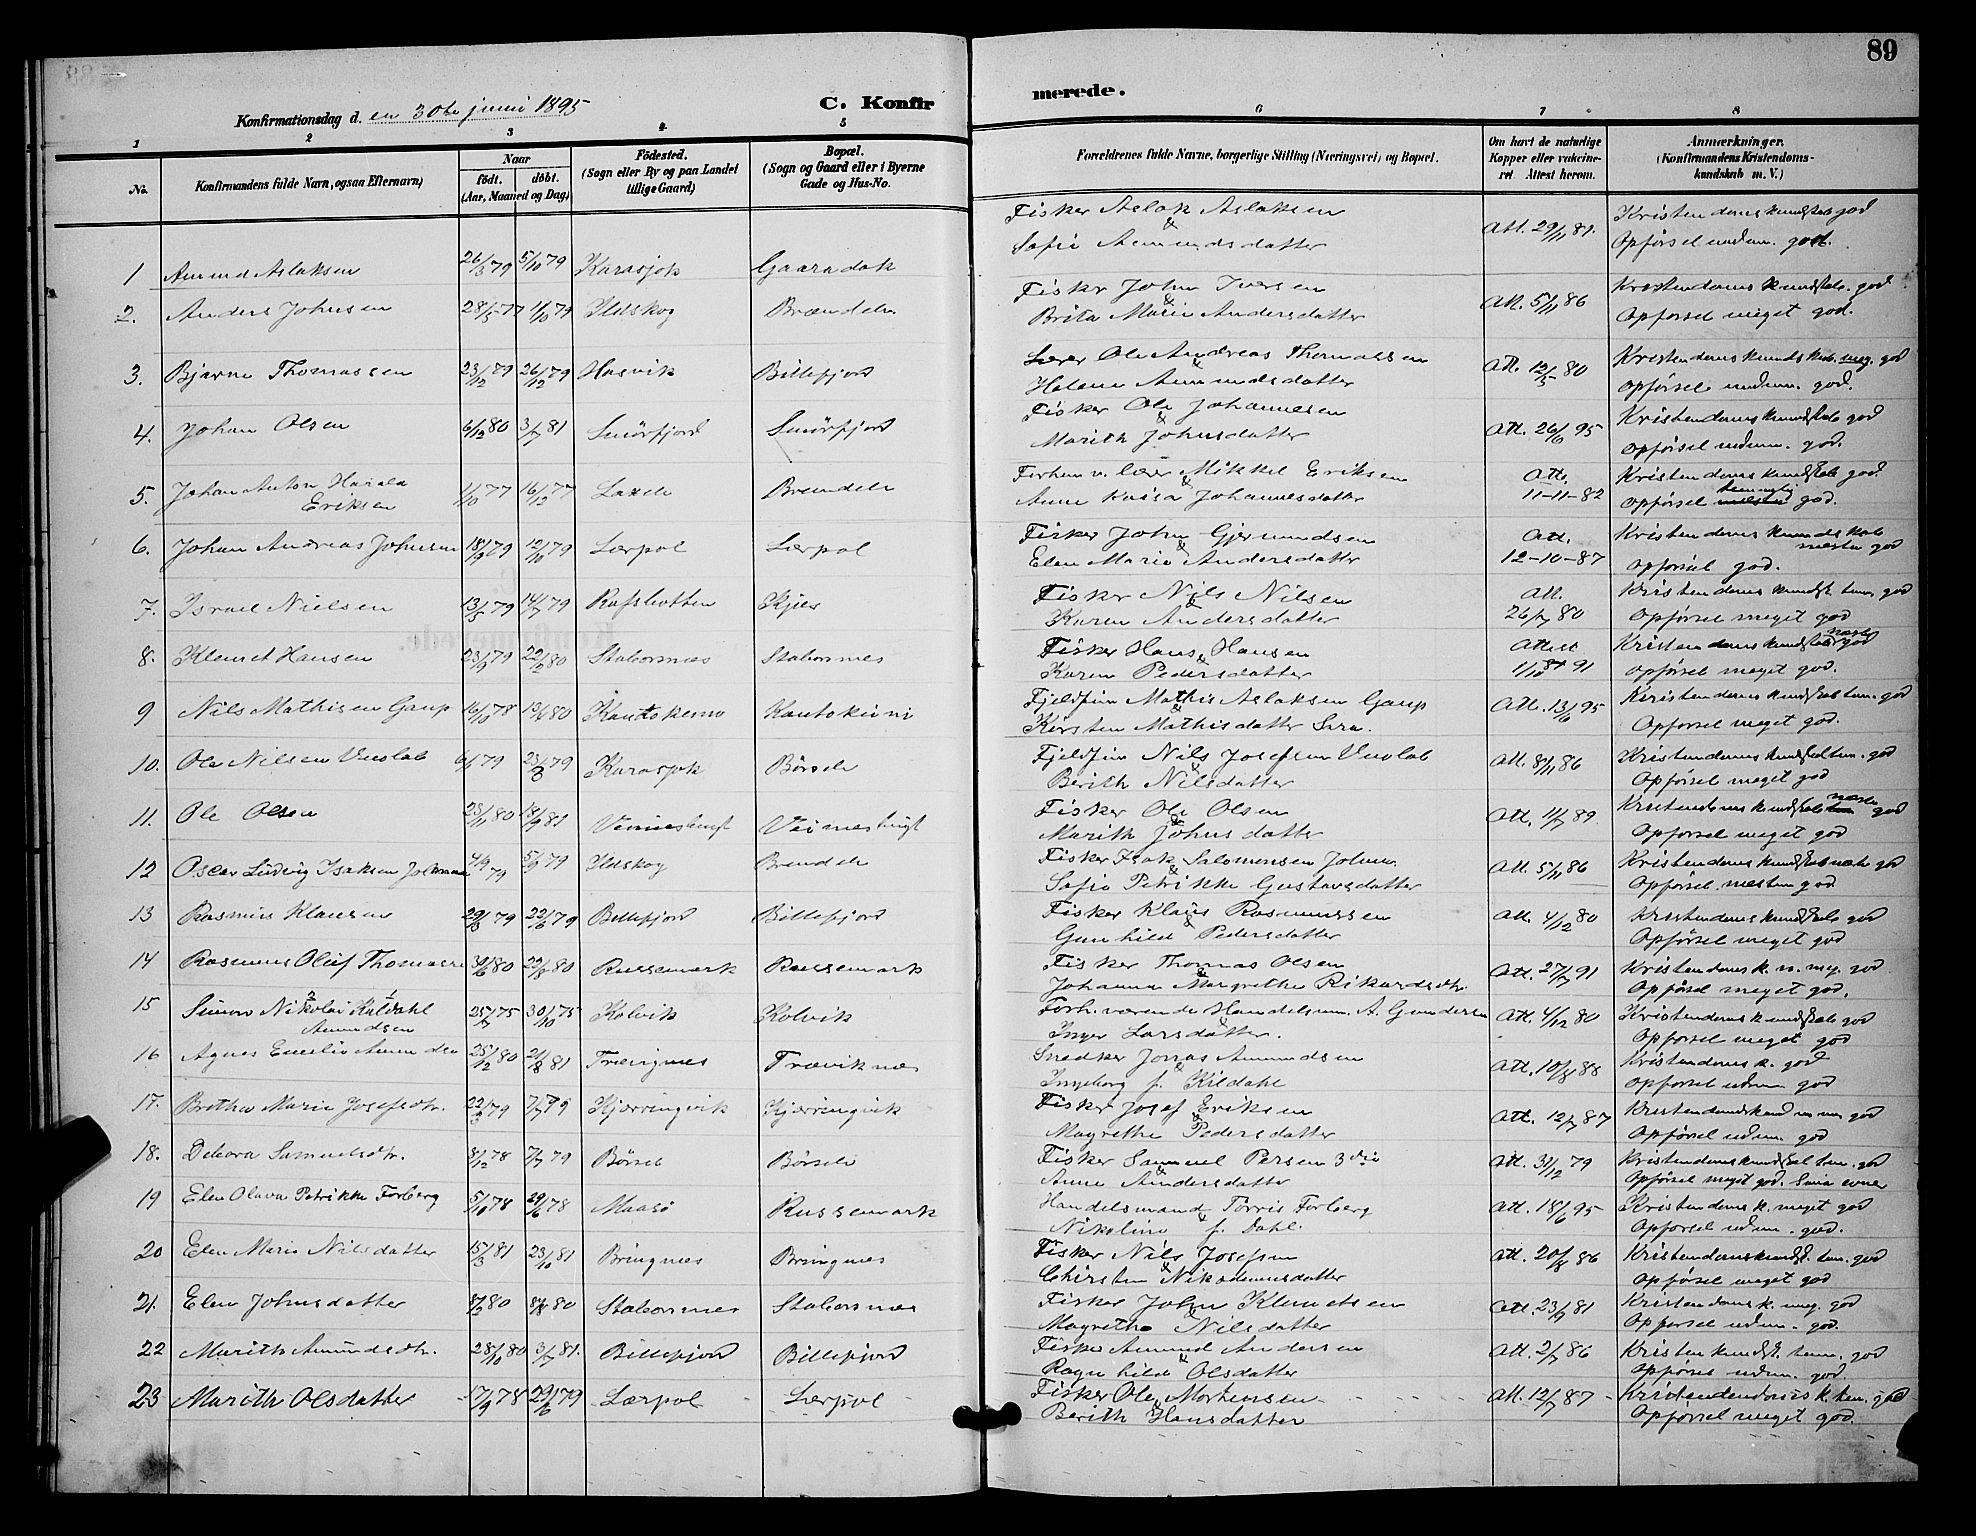 89
C. Konfirmerede.
Konfirmationsdag d. en 30te juni 1895
1 2 3 4 5 6 7 8
No. Konfirmandens fulde Navn, ogsaa Efternavn) Naar födt. döbt. (Aar, Maaned og Dag) Födested. (Sogn eller By og paa Landet tillige Gaard) Bopæl. (Sogn og Gaard eller i Byerne Gade og Hus-No. Forældrenes fulde Navne, borgerlige Stilling (Næringsvei) og Bopæl. Om havt de naturlige Kopper eller vaccineret. Attest herom. Anmærkninger. (Konfirmandens Kristendomskundskab m. V.)
1 Amund Aslaksen 26/3 79 5/10 79 Karasjok Gaaradak Fisker Aslak Aslaksen & Sofie Amundsdatter Att. 29/11 81. Kristendomskundskab god Opførsel udm. god.
2. Anders Johnsen 28/5 77 1/10 79 Ildskog Brændelv Fisker John Iversen & Brita Marie Andersdatter Att. 5/11 86 Kristendomskundskab. god Opførsel meget god.
3. Bjarne Thomassen 23/12 79 26/12 79 Hasvik Billefjord Lærer Ole Andreas Thomassen & Helene Amundsdatter Att. 12/5 80 Kristendomskundskab. meg. god Opførsel udm. god.
4. Johan Olsen 6/12 80 3/7 81 Smörfjord Smörfjord Fisker Ole Johannesen & Marith Johnsdatter Att. 26/6 95 Kristendomskundskab god Opførsel udm. god.
5. Johan Anton Harald Eriksen 1/10 77 16/12 77 Laxelv Brendelv Forhenv. lærer Mikkel Eriksen & Anne Kaisa Johannesdatter Att. 11-11-82 Kristendomskundskab god Opførsel temmelig god.
6. Johan Andreas Johnsen 18/9 79 12/10 79 Lærpol Lærpol Fisker John Gjermundsen & Elen Marie Andersdatter Att. 12-10-87 Kristendomskundskab næsten god Opførsel god.
7. Israel Nielsen 13/5 79 14/7 79 Rafsbotten Kjæs Fisker Nils Nilsen & Karen Andersdatter Att. 26/7 80 Kristendomskundsk. tem. god Opførsel meget god
8. Klemet Hansen 23/9 79 22/2 80 Stabornæs Stabornæs Fisker Hans Hansen & Karen Pedersdatter Attest 1/10 91 Kristendomskundskab næsten god Opførsel meget god.
9 Nils Mathisen Gaup 16/10 78 13/6 80 Kautokeino Kautokeino Fjeldfin Mathis Aslaksen Gaup & Kirsten Mathisdatter Sara. Att. 13/6 95 Kristendomskundskab tem. god Opførsel meget god.
10. Ole Nilsen Vuolab 6/1 79 23/3 79 Karasjok Börselv Fjeldfin Nils Josefsen Vuolab & Berith Nilsdatter Att. 8/11 86 Kristendomskundskab tem. god Opførsel meget god
11. Ole Olsen 23/11 80 18/9 81 Veinesbugt Veinesbugt Fisker Ole Olsen & Marith Johnsdatter Att. 11/7 89. Kristendomskundskab næsten god Opførsel meget god
12 Oscar Ludvig Isaksen 4/9 79 5/9 79 Ildskog Brendelv Fisker Isak Salomonsen & Sofie Petrikke Gustavsdatter Att. 5/11 86 Kristendomskundskab næst. god Opførsel næsten god
13 Rasmus Klausen 29/3 79 22/6 79 Billefjord Billefjord Fisker Klaus Rasmussen & Gunhild Pedersdatter Att. 4/12 80 Kristendomskundskab god Opførsel meget god
14 Rasmus Oluf Thomassen 30/6 80 22/8 80 Russemark Russemark Fisker Thomas Olsen & Johanna Margrethe Rikardsdtr. Att. 27/7 91 Kristendomsk. m. god Opførsel meget god.
15 Simon Nikolai Kildahl Amundsen 25/7 75 30/10 75 Kolvik Kolvik Forh. værende Handelsm. A. Gundersen & Inger Larsdatter. Att. 4/12 80 Kristendomskundskab god Opførsel meget god
16 Agnes Emelie Amundsen 25/12 80 21/8 81 Trævignes Træviknæs Snedker Jonas Amundsen & Ingeborg f. Kildahl Att. 10/8 88 Kristendomsk. god Opførsel udm. god
17. Brethe Marie Josefsdtr. 22/3 79 7/7 79 Kjærringvik Kjærringvik Fisker Josef Eriksen & Magrethe Pedersdatter Att. 12/7 87 Kristendomskund god Opførsel udm. god
18. Debora Samuelsdtr. 8/12 78 7/7 79 Börselv Börselv Fisker Samuel Persen 3die & Anne Andersdatter Att. 31/12 79 Kristendomskundskab tem. god Opførsel meget god. Smaa evner
19 Elen Olava Petrikke Forberg 5/10 78 29/6 78 Maasö Russemark Handelsmand Torris Forberg & Nikoline f. Dahl. Att. 18/6 95 Kristendomsk. meget god Opførsel udm. god.
20 Elen Marie Nilsdatter 15/3 81 23/10 81 Bringnæs Bringnæs Fisker Nils Josefsen & Chirsten Nikodemusdatter Att. 20/8 86 Kristendomskundsk. tem. god Opførsel meget god
21. Elen Johnsdatter 8/2 80 8/8 80 Stabornæs Stabornæs Fisker John Klemetsen & Magrethe Nilsdatter Att. 23/9 81 Kristendomsk. meg. god Opførsel udm. god.
22 Marith Amundsdtr. 28/10 80 3/7 81. Billefjord Billefjord Fisker Amund Andersen & Ragnhild Olsdatter Att. 2/7 86 Kristenkundsk. tem. god Opførsel udm. god
23 Marith Olsdatter 17/9 78 29/6 79 Lærpol Lærpol Fisker Ole Mortensen & Berith Hansdatter Att. 12/7 87 Kristendendomsk. tem. god Opførsel meget god.